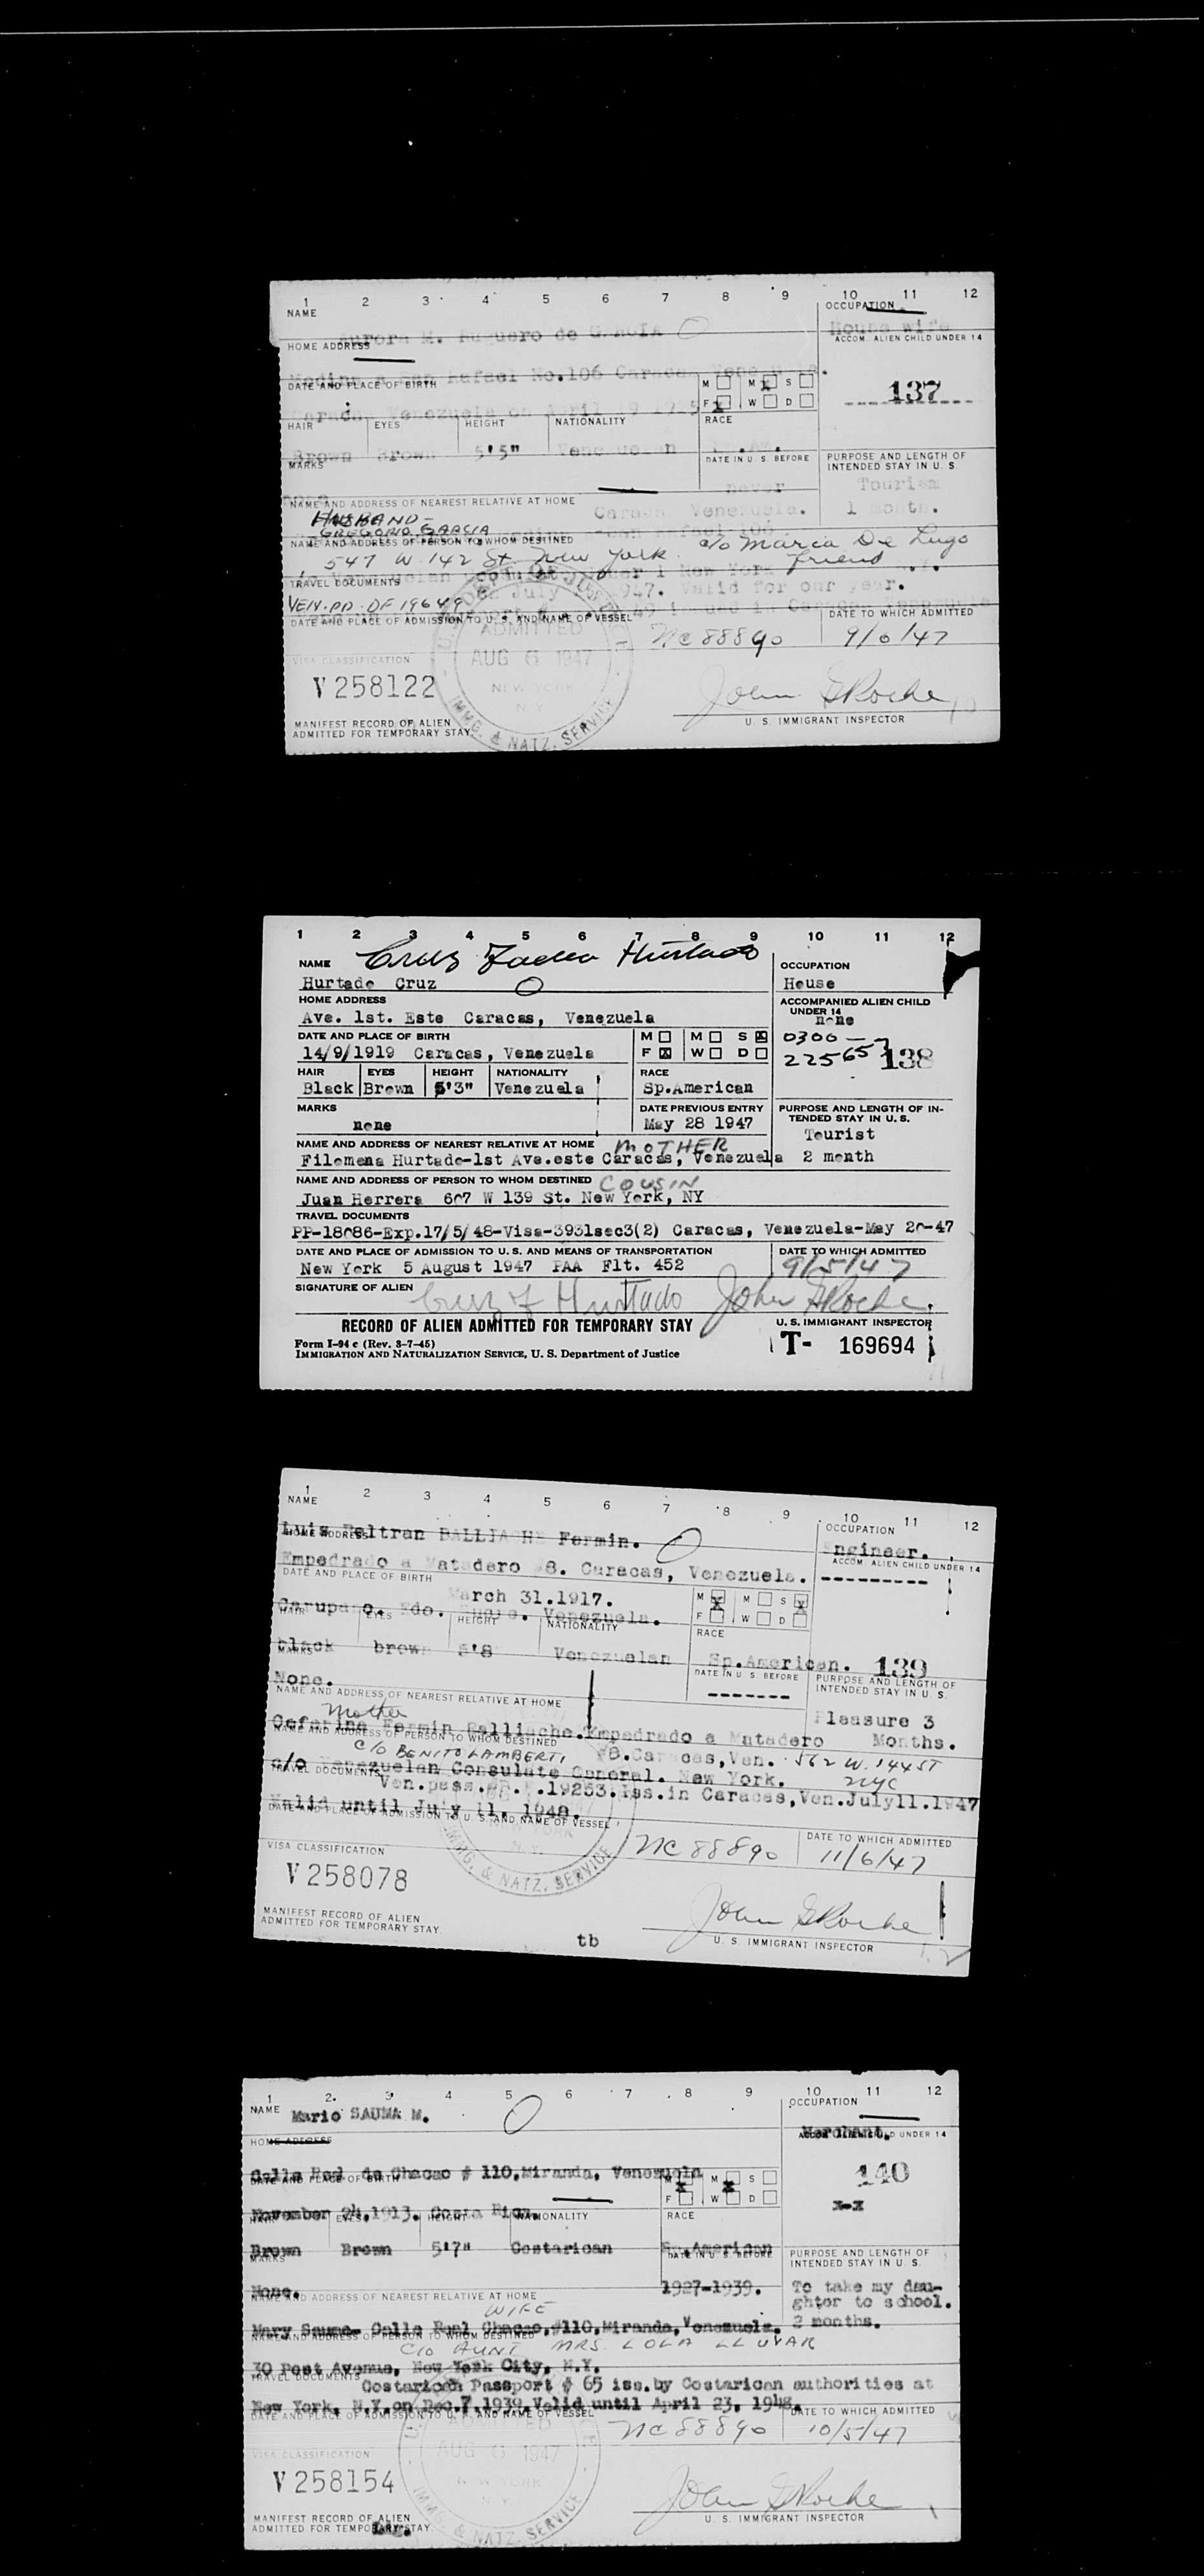 1 2 3 4 5 6 7 8 9 10 11 12
NAME OCCUPATION
Aurora M. de House wife
HOME ADDRESS ACCOM. ALIEN CHILD UNDER 14
Rafael No.106 Caracas
DATE AND PLACE OF BIRTH M M S
137
Venezuela on April 19 F W D
HAIR EYES HEIGHT NATIONALITY RACE
Brown Brown 5'5" Venezuelan
MARKS DATE IN U. S. BEFORE PURPOSE AND LENGTH OF INTENDED STAY IN U. S.
never Tourism
NAME AND ADDRESS OF NEAREST RELATIVE AT HOME
HUSBAND- Venezuela. 1 month.
GREGORIO GARCIA
NAME AND ADDRESS OF PERSON TO WHOM DESTINED c/o Maria De Lugo
547 W 142 St. New York. friend
TRAVEL DOCUMENTS July 1947. Valid for one year.
VEN. PP. DF 19649
DATE AND PLACE OF ADMISSION TO U. S. AND NAME OF VESSEL DATE TO WHICH ADMITTED
ADMITTED NC 88890 9/6/47
VISA CLASSIFICATION AUG 6 1947
V 258122 NEW YORK John Roche
N.Y.
MANIFEST RECORD OF ALIEN U. S. IMMIGRANT INSPECTOR
ADMITTED FOR TEMPORARY STAY
IMMG. & NATZ. SERVICE
1 2 3 4 5 6 7 8 9 10 11 12
NAME Cruz Hurtado OCCUPATION
Hurtado Cruz House
HOME ADDRESS ACCOMPANIED ALIEN CHILD UNDER 14
Ave. 1st. Este Caracas, Venezuela none
DATE AND PLACE OF BIRTH M M S 0300-
14/9/1919 Caracas, Venezuela F W D 225657 138
HAIR EYES HEIGHT NATIONALITY RACE
Black Brown 5'3" Venezuela Sp.American
MARKS DATE PREVIOUS ENTRY PURPOSE AND LENGTH OF INTENDED STAY IN U. S.
none May 28 1947 Tourist
NAME AND ADDRESS OF NEAREST RELATIVE AT HOME MOTHER
Filomena Hurtado-1st Ave.este Caracas, Venezuela 2 month
NAME AND ADDRESS OF PERSON TO WHOM DESTINED COUSIN
Juan Herrera 607 W 139 St. New York, NY
TRAVEL DOCUMENTS
PP-18086-Exp.17/5/48-Visa-3931sec3(2) Caracas, Venezuela-May 20-47
DATE AND PLACE OF ADMISSION TO U. S. AND MEANS OF TRANSPORTATION DATE TO WHICH ADMITTED
New York 5 August 1947 PAA Flt. 452 9/5/47
SIGNATURE OF ALIEN Cruz Hurtado John Roche
RECORD OF ALIEN ADMITTED FOR TEMPORARY STAY U. S. IMMIGRANT INSPECTOR
Form I-94 c (Rev. 3-7-45) T- 169694
IMMIGRATION AND NATURALIZATION SERVICE, U. S. Department of Justice
1 2 3 4 5 6 7 8 9 10 11 12
NAME OCCUPATION
Luis Beltran BALLIACHE Fermin. Engineer.
HOME ADDRESS ACCOM. ALIEN CHILD UNDER 14
Empedrado a Matadero #8. Caracas, Venezuela. ---------
DATE AND PLACE OF BIRTH
March 31.1917. M M S
Carupano. Edo. Sucre. Venezuela. F W D
HAIR EYES HEIGHT NATIONALITY RACE
black brown 5'8 Venezuelan Sp.American. 139
MARKS DATE IN U. S. BEFORE PURPOSE AND LENGTH OF INTENDED STAY IN U. S.
None. -------
NAME AND ADDRESS OF NEAREST RELATIVE AT HOME Pleasure 3
Mother
Ceferina Fermin Balliache.Empedrado a Matadero Months.
NAME AND ADDRESS OF PERSON TO WHOM DESTINED
C/O BENITO LAMBERTI #8.Caracas,Ven. 562 W. 144 ST
c/o Venezuelan Consulate General. New York. NYC
TRAVEL DOCUMENTS
Ven.pass. 19263.Iss.in Caracas,Ven.July11.1947
Valid until July 11, 1948.
DATE AND PLACE OF ADMISSION TO U. S. AND NAME OF VESSEL DATE TO WHICH ADMITTED
NC 88890 11/6/47
VISA CLASSIFICATION
V 258078 John Roche
MANIFEST RECORD OF ALIEN
ADMITTED FOR TEMPORARY STAY
tb U. S. IMMIGRANT INSPECTOR
IMMG. & NATZ. SERVICE
1 2 3 4 5 6 7 8 9 10 11 12
NAME Mario SAUMA M. OCCUPATION
HOME ADDRESS Merchant.
ACCOM. ALIEN CHILD UNDER 14
Calle Real de Chacao # 110,Miranda, Venezuela 140
DATE AND PLACE OF BIRTH M M S
November 24,1913. Costa Rica. F W D x-x
HAIR EYES HEIGHT NATIONALITY RACE
Brown Brown 5'7" Costarican Sp.American
MARKS DATE IN U. S. BEFORE PURPOSE AND LENGTH OF INTENDED STAY IN U. S.
None. 1927-1939. To take my dau-
NAME AND ADDRESS OF NEAREST RELATIVE AT HOME ghter to school.
WIFE
Mary Sauma- Calle Real Chacao,#110,Miranda,Venezuela. 2 months.
NAME AND ADDRESS OF PERSON TO WHOM DESTINED
C/O AUNT MRS. LOLA LLUVAR
30 Post Avenue, New York City, N.Y.
TRAVEL DOCUMENTS
Costarican Passport # 65 iss.by Costarican authorities at
New York, N.Y.on Dec.7,1939.Valid until April 23, 1948.
DATE AND PLACE OF ADMISSION TO U. S. AND NAME OF VESSEL DATE TO WHICH ADMITTED
ADMITTED NC 88890 10/5/47
VISA CLASSIFICATION AUG 6 1947
V 258154 NEW YORK John Roche
N.Y.
MANIFEST RECORD OF ALIEN U. S. IMMIGRANT INSPECTOR
ADMITTED FOR TEMPORARY STAY
IMMG. & NATZ. SERVICE